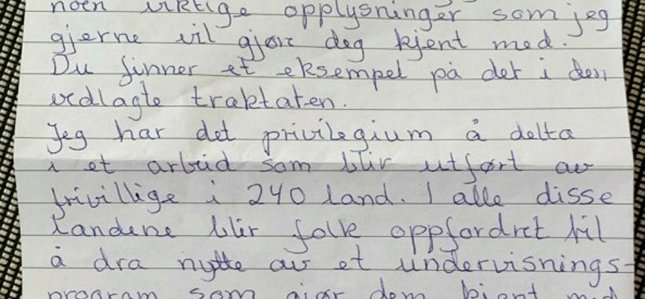 noen viktige opplysninger som jeg
gjerne vil gjøre deg kjent med.
Du finner et eksempel på det i den
vedlagte traktaten.
Jeg har det privilegium å delta
i et arbeid som blir utført av
frivillige i 240 land. I alle disse
landene blir folk oppfordret til
å dra nytte av et undervisnings-
program som gjør dem kjent med